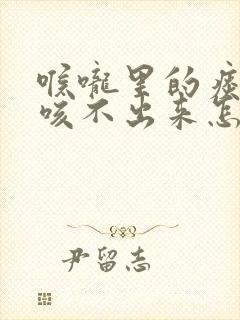 喉咙里的痰
咳不出来怎
尹留志